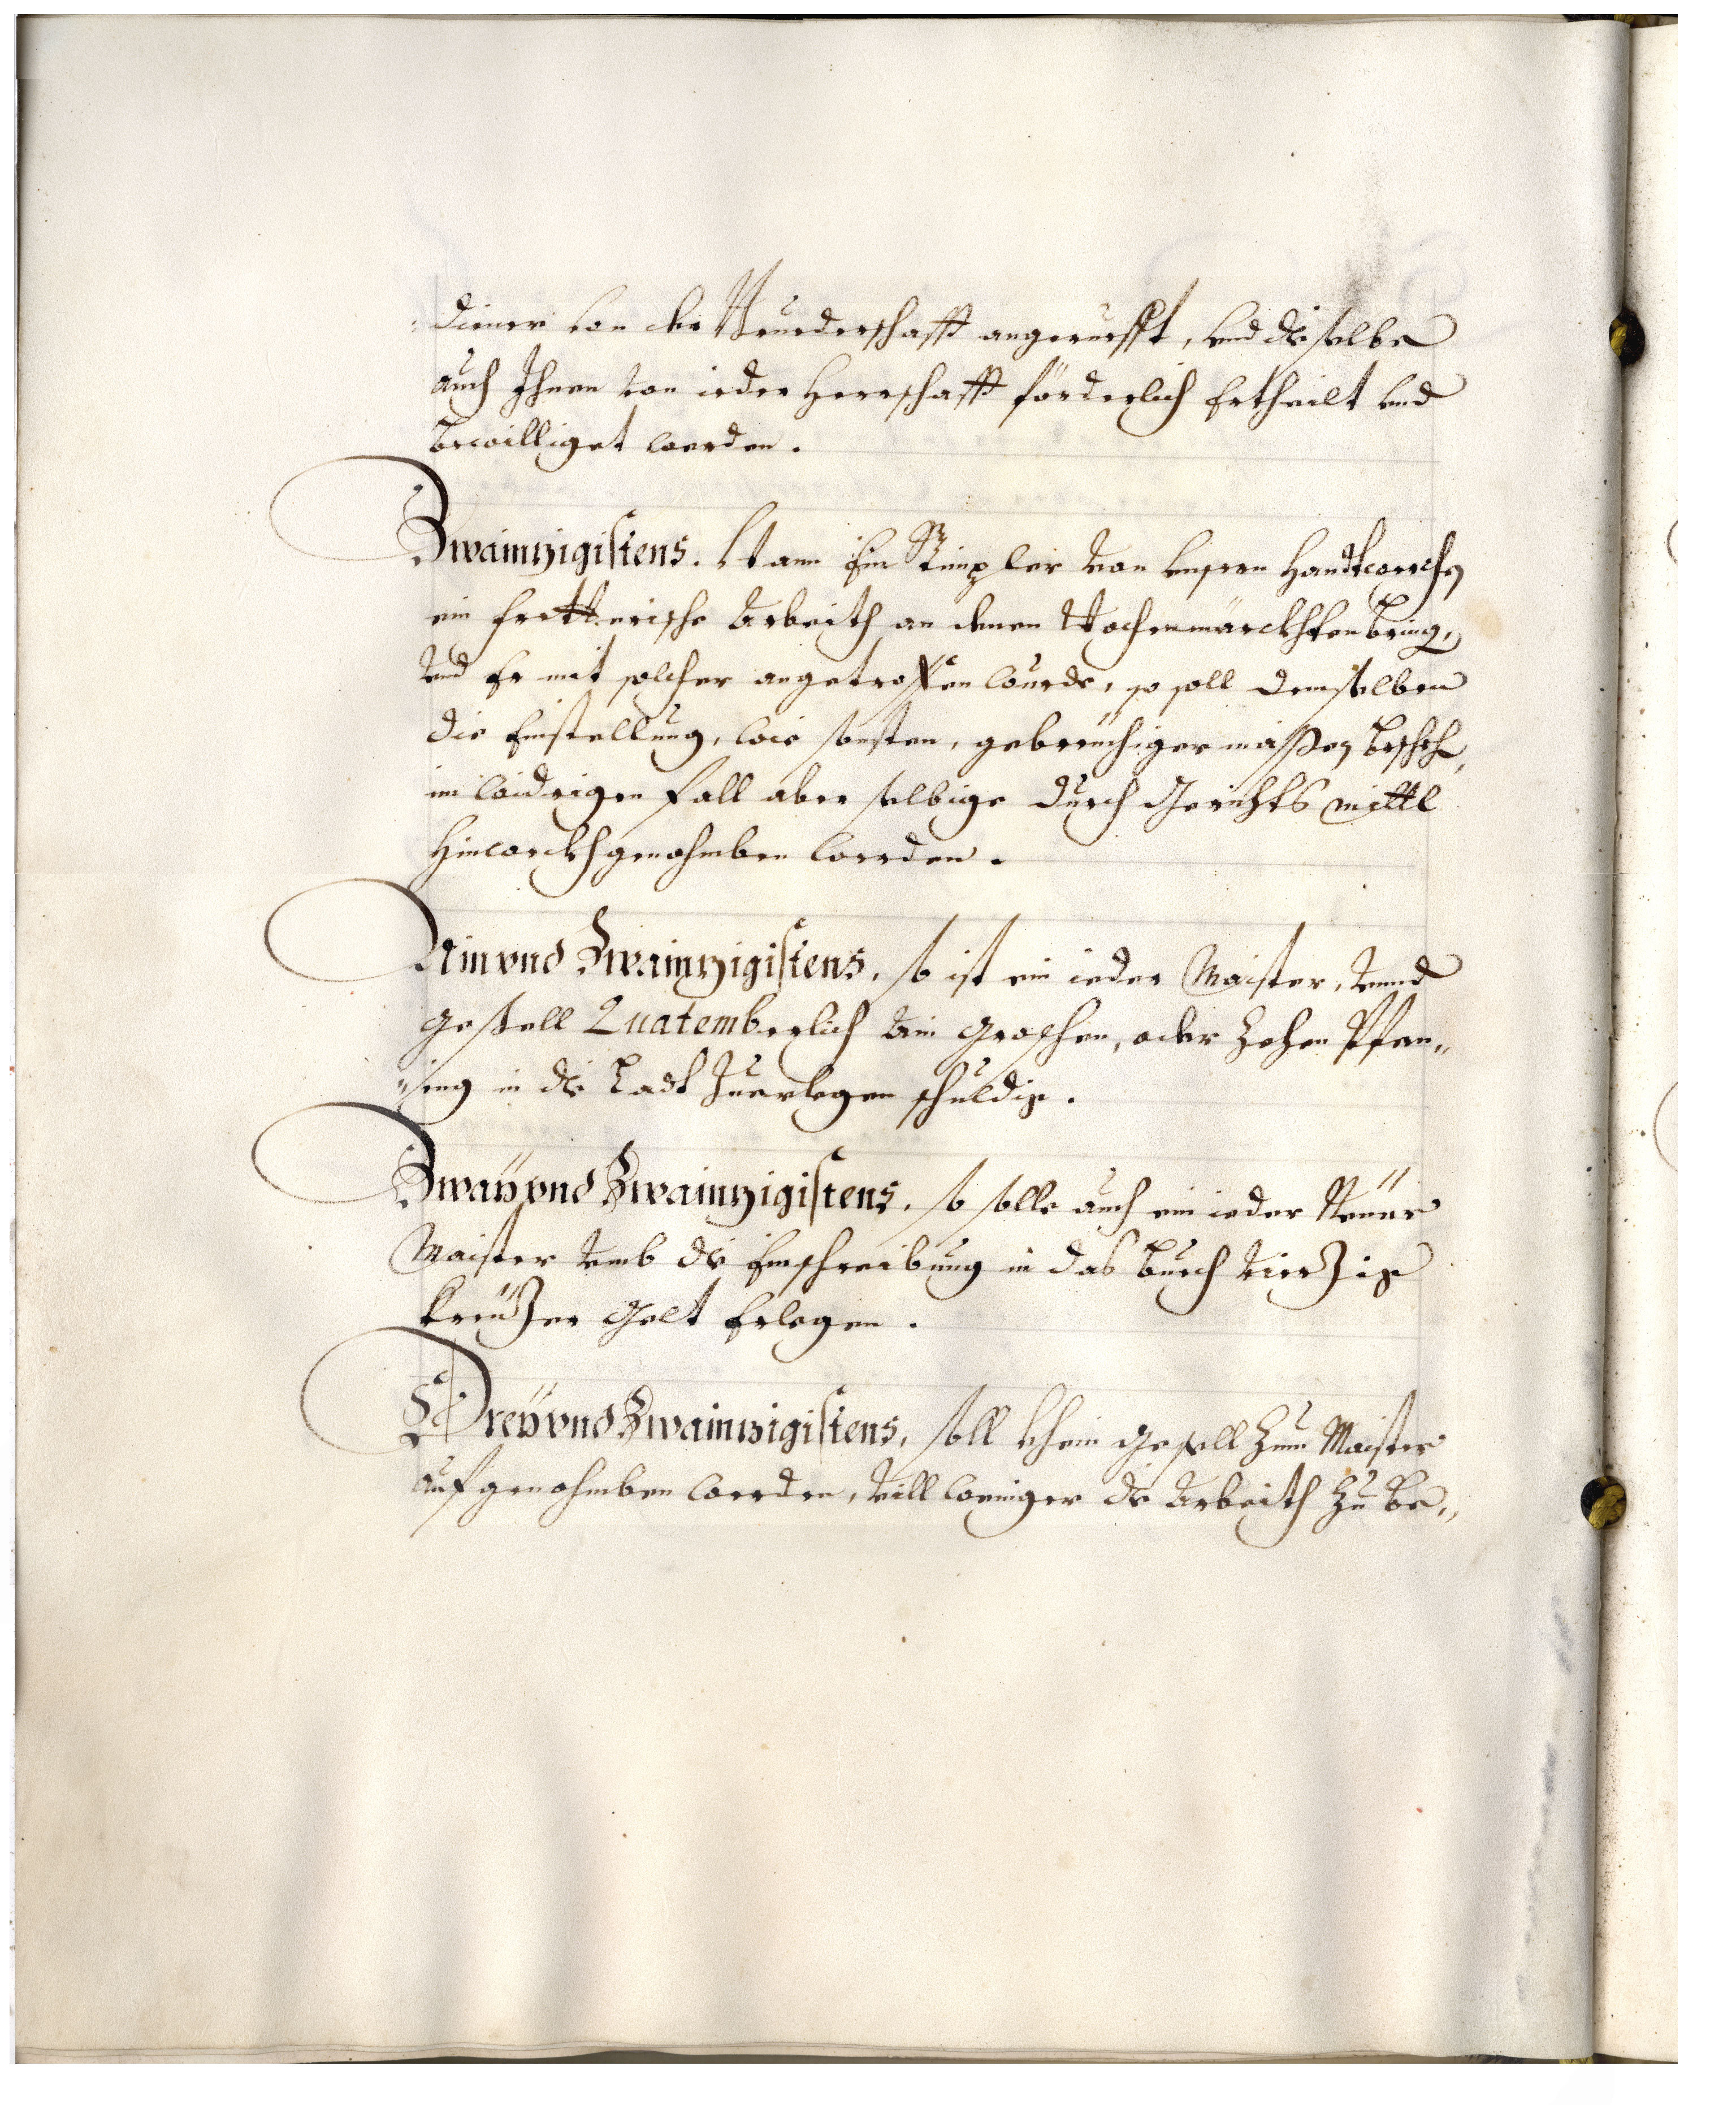 diener von der Bruederschafft angeruefft, vnd dieselbe
auch Ihnen von ieder Herrschafft förderlich Ertheilt vnd
bewilliget werden.
Zwainzigistens. Wann Ein Stimpler von vnsern Handtwerch
ein frettterische Arbeith an denen Wochenmärckhten bring,
vnd Er mit solcher angetroffen wurde, so soll demselben
die Einstellung, wie sonsten, gebreüchiger massen besheh,
im widrigen fall aber selbige durch Gerichts mittl
hinweckhgenohmben werden.
Ain vnd Zwainzigistens. so ist ein ieder Maister, vnnd
Gesell Quatemberlich Ain Groschen, oder Zehen Pfen„
„ing in die Ladt Zuerlegen schuldig.
Zwaÿ vnd Zwainzigistens. so solle auch ein ieder Neüer
Maister vmb die Einschreibung in das Buech vierzig
Kreüzer Gelt Erlegen.
Dreÿ vnd Zwainzigistens, soll khein Gesell Zum Maister
aufgenohmben werden, vill weniger die Arbeith Zu be„